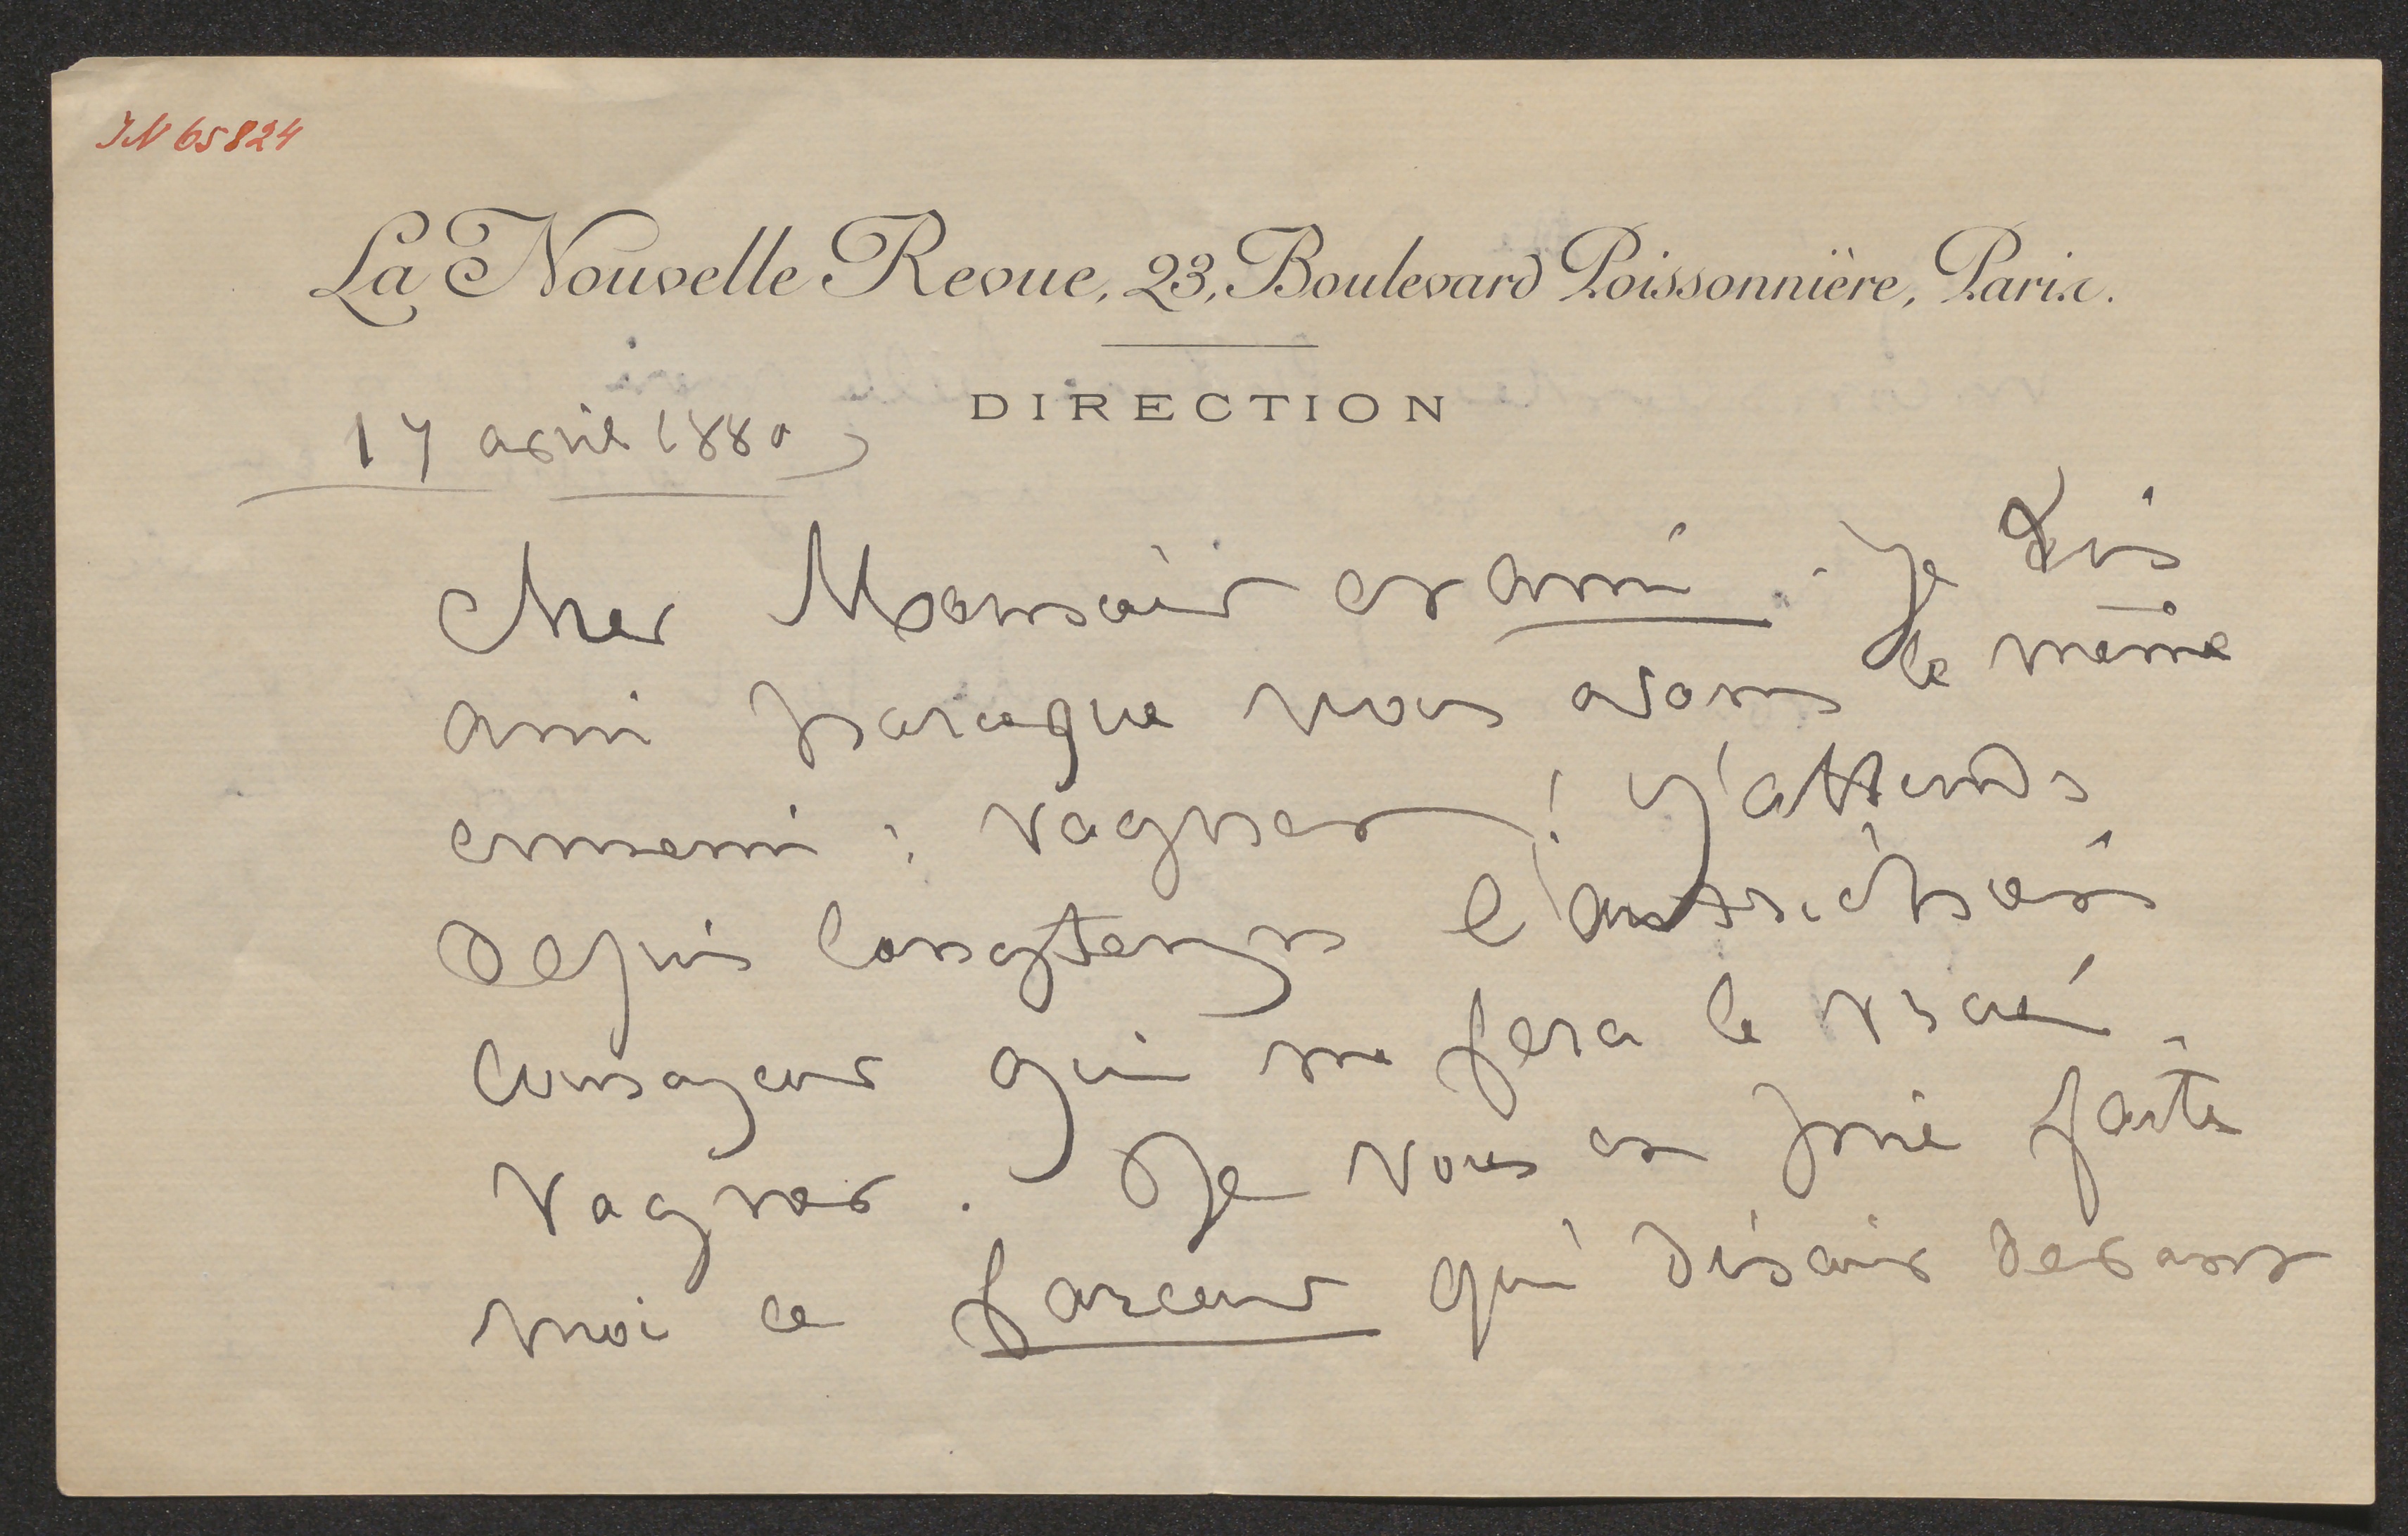 IN 65824
La Nouvelle Revue, 23, Boulevard Poissonnière, Paris.
DIRECTION
17 avril 1880
Cher Monsieur et ami. Je dis
ami parceque nous avons le même
ennemi : Vagner ! J'attends
depuis longtemps l'autrichien
courageux qui me fera le vrai
Vagner. Je vous en prie faites
moi ce farceur qui disait devant